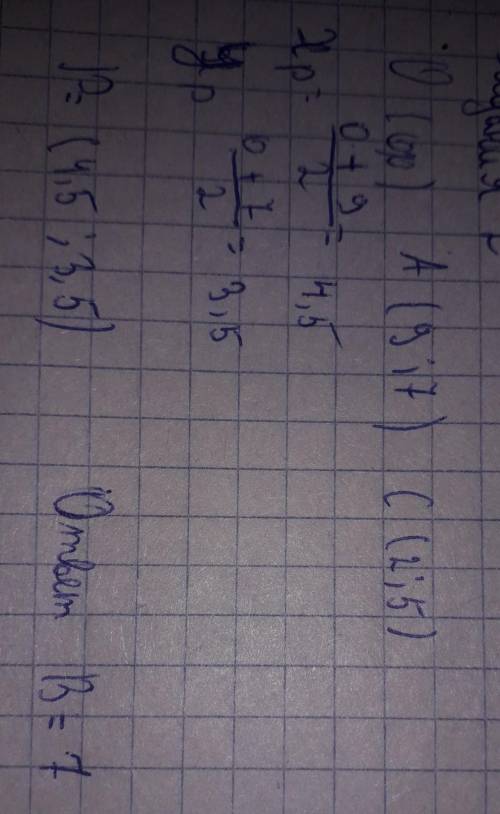 O (0;0) A (9;7) C (2;5)
xp = 0+9/2 = 4,5
yp 0+7/2 = 3,5
P = (4,5;3,5) Ответ B = 7